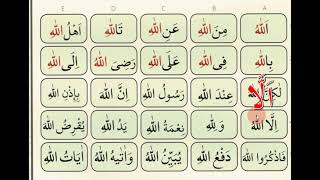 E D C B A
اَللّٰهُ مِنَ اللّٰهِ عَنِ اللّٰهِ تَاللّٰهِ اَهْلُ اللّٰهِ
بِاللّٰهِ فِى اللّٰهِ عَلَى اللّٰهِ رَضِىَ اللّٰهُ اِلَى اللّٰهِ
عِنْدَ اللّٰهِ رَسُولُ اللّٰهِ اِنَّ اللّٰهَ بِاِذْنِ اللّٰهِ
اِلَّا اللّٰهُ وَلِلّٰهِ نِعْمَةُ اللّٰهِ يَدُ اللّٰهِ يُقْرِضُ اللّٰهَ
فَاذْكُرُوا اللّٰهَ دَفْعُ اللّٰهِ يُبَيِّنُ اللّٰهُ وَاٰتٰيهُ اللّٰهُ اٰيَاتُ اللّٰهِ